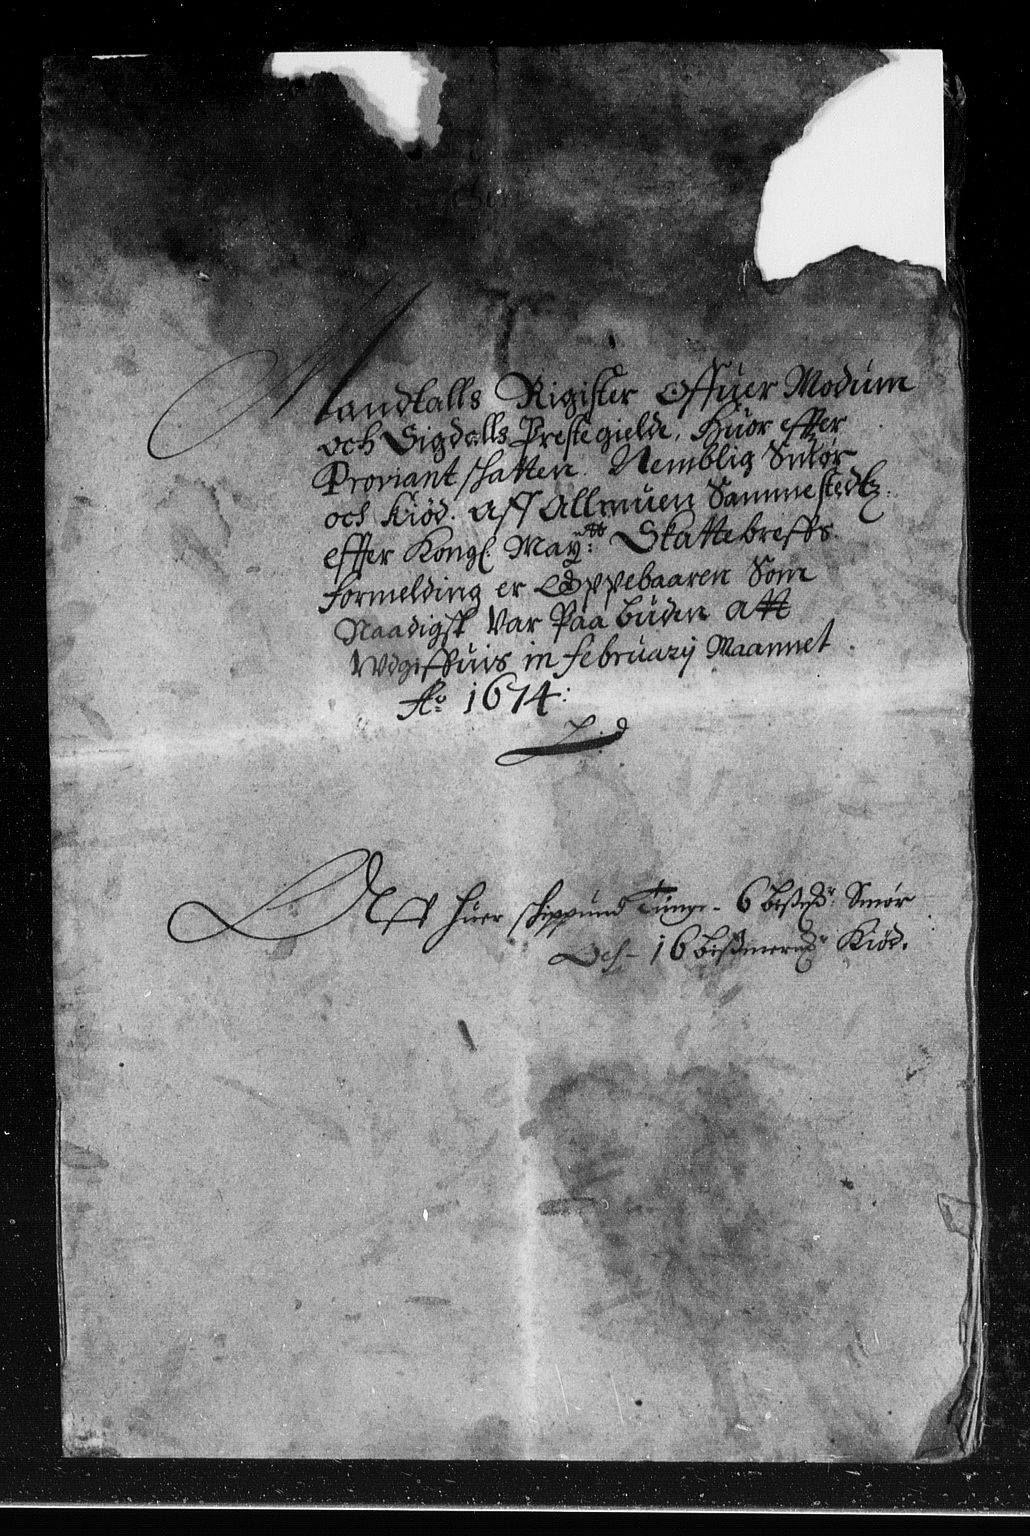 Mandtalls Rigister Offuer Modum
och Sigdalls Prestegieldt, Huor effter
Proviant skatten. Nemblig Smör
och Kiöd. Aff Allmuen Sammestedtz.
effter Kongl. May:tts Skattebreffs
formelding er Oppebaaren Som
Naadigst Var Paa buden Att
Wdgiffuis in februarij Maannet
Ao 1674:
Aff huer skippund Tunge - 6 Bismerpd: Smör
Och - 16 bismerpd Kiöd.